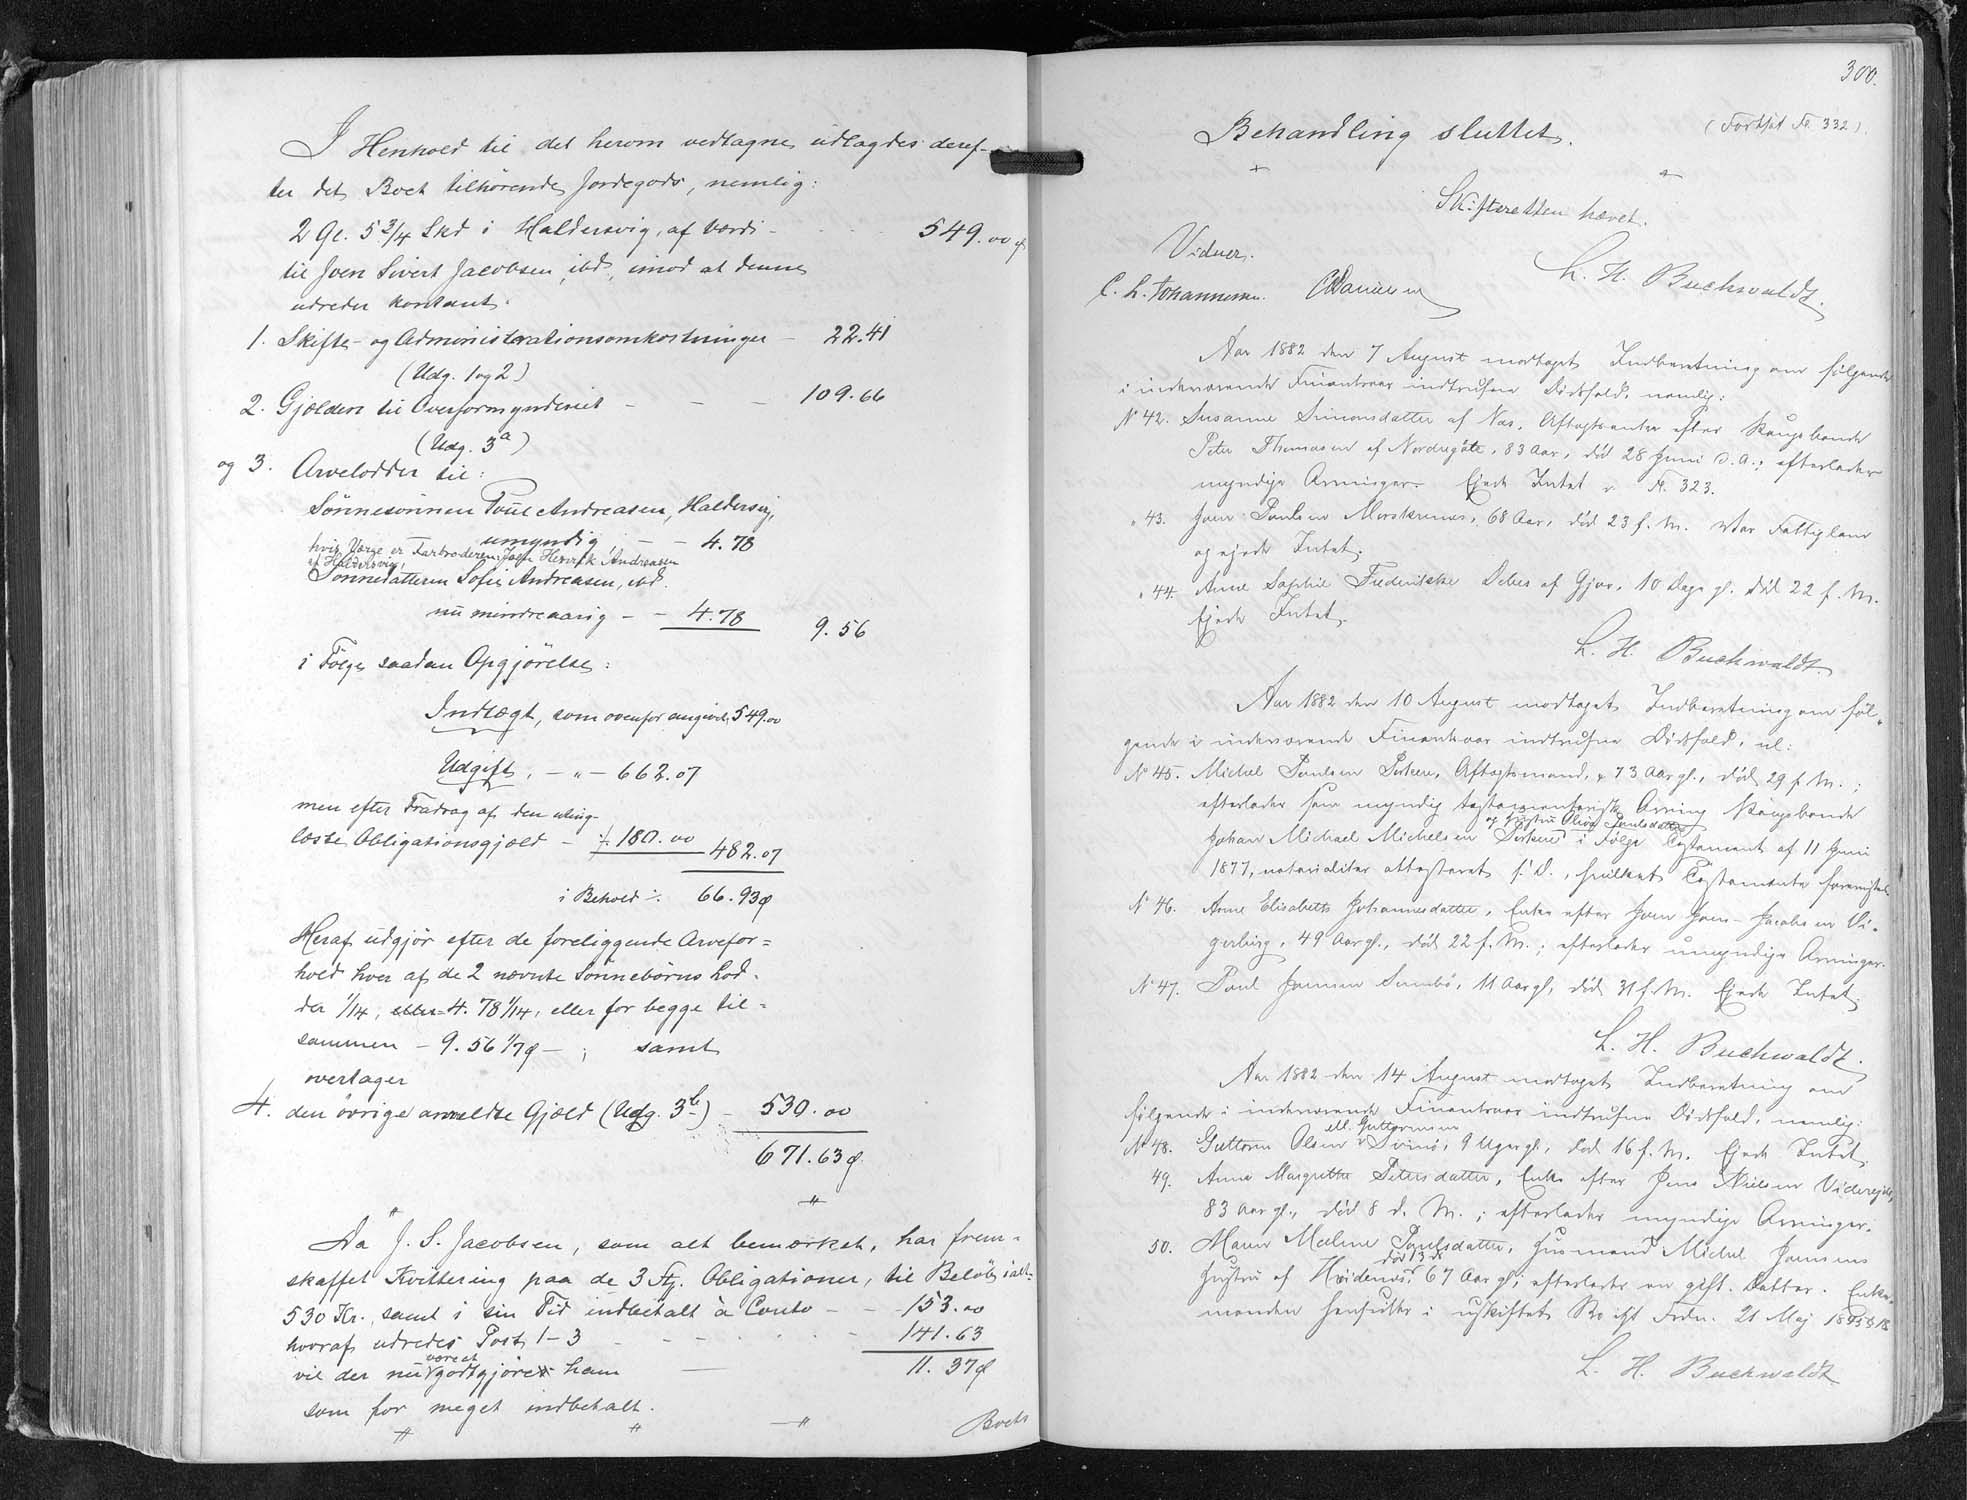 I Henhold til det herom vedtagne udlagdes deref-
ter det Boet tilhørende Jordegods, nemlig:
2 Gl. 5 3/4 Skd i Haldersvig, af Værdi - 549.00 ø
til Joen Sivert Jacobsen ibd, imod at denne
udreder kontant:
1. Skifte- og Administrationsomkostninger - 22.41
(Udg. 1 og 2)
2. Gjælden til Overformynderiet - - - 109.66
(Udg. 3 a)
og 3. Arvelodder til:
Sönnesönnen Poul Andreasen, Haldersvig,
umyndig - - 4.78
hvis Værge er Farbroderen Joen Henrik Andreasen
af Haldersvig,
Sönnedatteren Sofie Andreasen, ibd.
nu mindreaarig - - 4.78 9.56
i Følge saadan Opgjörelse:
Indtægt, som ovenfor angivet, 549.00
Udgift, - " - 662.07
men efter Fradrag af den uting-
læste Obligationsgjæld - ÷ 180.00 482.07
i Behold ÷ 66.93 ø
Heraf udgjör efter de foreliggende Arvefor=
hold hver af de 2 nævnte Sönnebörns Lod-
der 1/14, eller 4.78 1/14, eller for begge til=
sammen - 9.56 1/7 ø - ; samt
overtager
4. den övrige anmeldte Gjæld (Udg. 3 b) - 530.00
671.63 ø
"
Da J. S. Jacobsen, som alt bemærket, har frem-
skaffet Kvittering paa de 3 Stj. Obligationer, til Beløb ialt=
530 Kr., samt i sin Tid indbetalt à Conto - - 153.00
hvoraf udredes Post 1-3 - - - 141.63
været
vil der nu godtgjöres ham 11.37 ø
som for meget indbetalt.
" " " Boets
300.
Behandling sluttet. (Fortsat Fo. 332).
Skifteretten hævet.
L. H. Buchwaldt.
Vidner.
C. L. Johannesen.
Aar 1882 den 7 August modtaget Indberetning om følgende
i indeværende Finantsaar indtrufne Dödsfald, nemlig:
No 42. Susanne Simonsdatter af Næs, Aftægtsenke efter Kongsbonde
Peter Thomasen af Nordregöte, 83 Aar, död 28 Juni d. A.; efterlader
myndige Arvinger. Ejede Intet v. Fo. 323.
" 43. Joen Poulsen Morskranes, 68 Aar, död 23 f. M. Var Fattiglem
og ejede Intet.
" 44. Anne Sophie Frederikke Debes af Gjov, 10 Dage gl. död 22 f. M.
Ejede Intet.
L. H. Buchwaldt.
Aar 1882 den 10 August modtaget Indberetning om föl-
gende i indeværende Finantsaar indtrufne Dödsfald, nl:
No 45. Michel Poulsen Porkere, Aftægtsmand, 73 Aar gl., död 29 f. M.;
efterlader som myndig testamentarisk Arving Kongsbonde
og Hustru Olive Poulsdatter
Johan Michael Michelsen Porkere i Følge Testament af 11 Juni
1877, notarialiter attesteret s. D., hvilket Testamente forevistes.
No 46. Anne Elisabeth Johannesdatter, Enke efter Joen Joens-Jacobsen Vi-
gerbirg, 49 Aar gl., död 22 f. M.; efterlader umyndige Arvinger.
No 47. Poul Joensen Sumbö, 11 Aar gl., död 31 f. M. Ejede Intet.
L. H. Buchwaldt.
Aar 1882 den 14 August modtaget Indberetning om
følgende i indeværende Finantsaar indtrufne Dödsfald, nemlig:
ell. Guttormsen
No 48. Guttorm Olsen Svinö, 9 Uger gl., död 16 f. M. Ejede Intet.
49. Anna Margrethe Petersdatter, Enke efter Jens Nielsen Videreide,
83 Aar gl., död 8 d. M.; efterlader myndige Arvinger.
50. Maren Malene Poulsdatter, Husmand Michel Joensens
död 13 ds
Hustru af Hvidenæs, 67 Aar gl.; efterlader en gift Datter. Enke-
manden hensidder i uskiftet Bo ifl. Frdn. 21 Maj 1845 § 18
L. H. Buchwaldt